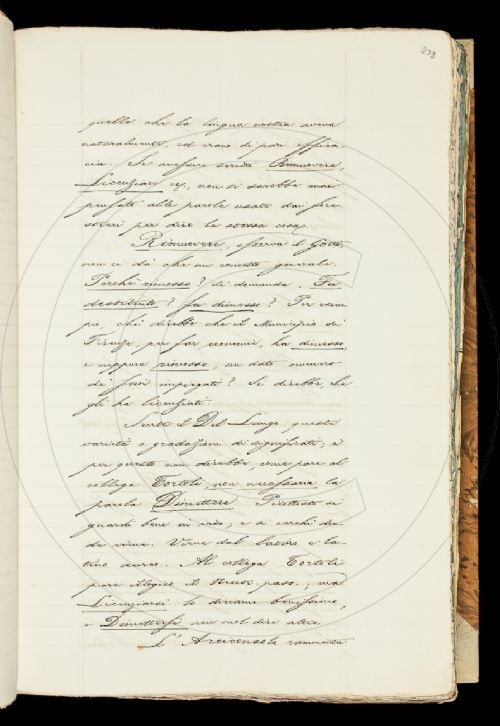 273
quelle che la lingua nostra aveva
naturalmente, ed erano di pari effica-
cia. Se avessero scritto Rimuovere,
Licenziare ec., non si sarebbe mai
pensato alle parole usate dai fore-
stieri per dire la stessa cosa.
Rimuovere, osserva il Gotti,
non ci dà che un concetto generale.
Perchè rimosso? si domanda. Fu
destituito? fu dimesso? Per esem-
pio, chi direbbe che il Municipio di
Firenze, per far economie, ha dimesso
e neppure rimosso, un dato numero
di suoi impiegati? Si direbbe che
gli ha licenziati.
Sente il Del Lungo queste
varietà e gradazioni di significato; e
per questo non direbbe, come pare al
collega Tortoli, non necessaria la
parola Dimettere. Piuttosto si
guardi bene in viso; e si cerchi don-
de viene. Viene dal latino e la-
tino aureo. Al collega Tortoli
pare illogico il recipr. pass.; ma
Licenziarsi lo diciamo benissimo,
e Dimettersi non vuol dire altro.
L'Arciconsolo rammenta